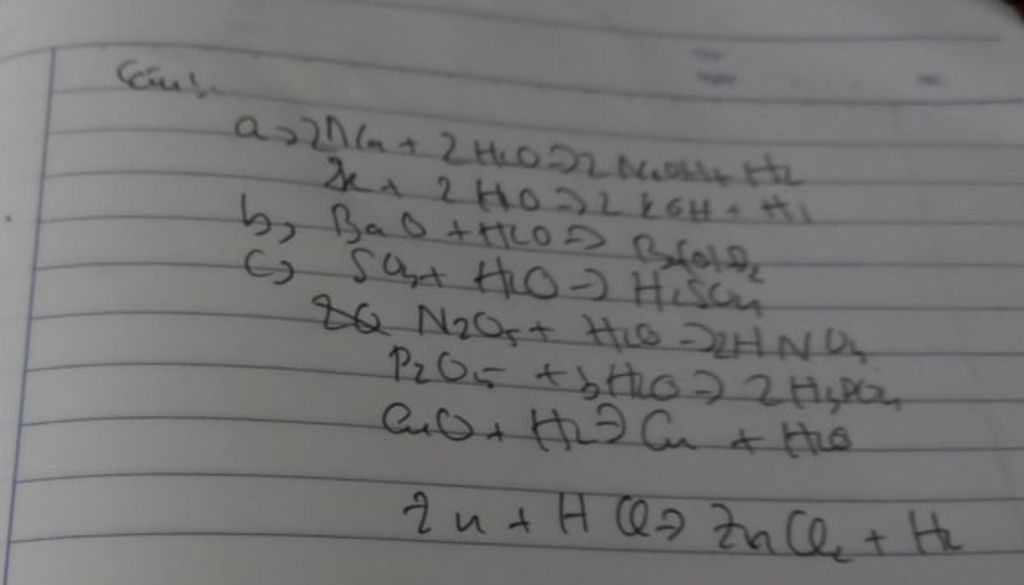 Câu 1.
a, 2Na + 2H2O → 2NaOH + H2
2K + 2H2O → 2KOH + H2
b, BaO + H2O → Ba(OH)2
c, SO3 + H2O → H2SO4
N2O5 + H2O → 2HNO3
P2O5 + 3H2O → 2H3PO4
CuO + H2 → Cu + H2O
Zn + HCl → ZnCl2 + H2